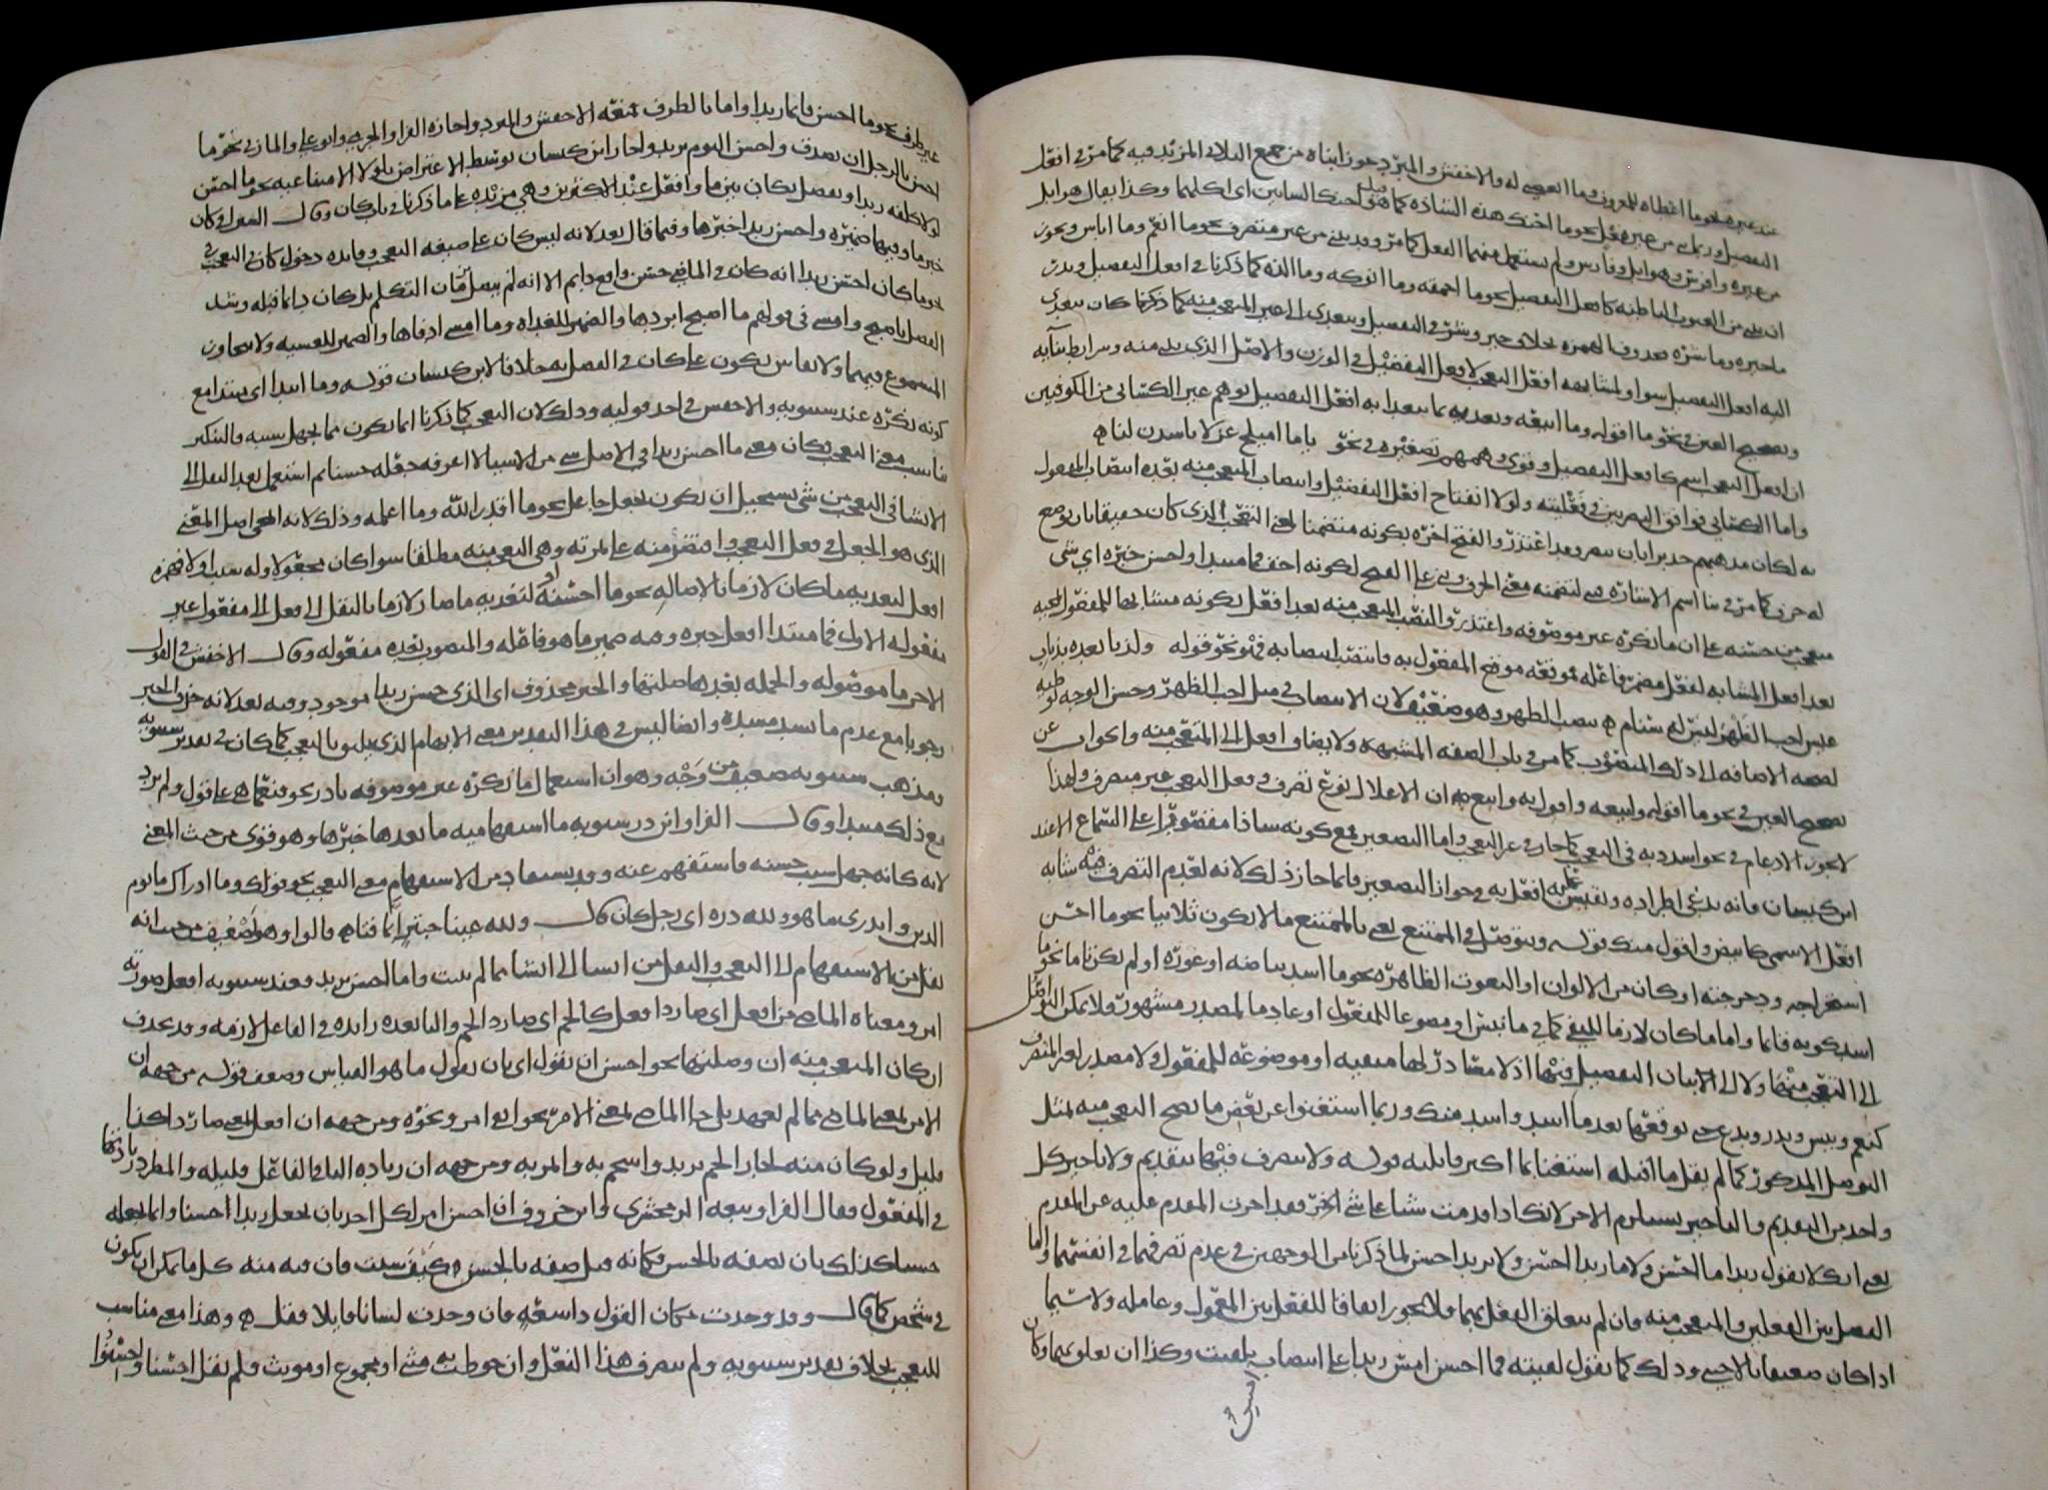 عند غيره نحو ما اعطاه للمعروف وما ابغضني له والاخفش والمبرد جوزا بناه من جميع الثلاثي المزيد فيه كما مر في افعل
التفضيل وربما بني من غير فعل نحو ما احنك هذه الشاة كما قيل احنك الشاتين اي اكلهما وكذا يقال هو ابل
من غيره وافرس وهو ابل وفارس ولم يستعمل منهما الفعل كما مر وقد بني من غير متصرف نحو ما انعم وما ابأس ويجوز
ان يبنى من العيوب الباطنة كافعل التفضيل نحو ما احمقه وما انوكه وما الده كما ذكرنا في افعل التفضيل وندر
ما خيره وما شره محذوف الهمزة بخلاف خير وشر في التفضيل ويتعدى الى غير المتعجب منه كما ذكرنا كان يتعدى
اليه افعل التفضيل سواء ولمشابهة افعل التعجب لافعل التفضيل في الوزن والاصل الذي بني منه وشرائط بنائه
وتصحيح العين في نحو ما اقوله وما ابيعه وتعديه بما يتعدا به افعل التفضيل توهم غير الكسائي من الكوفيين
ان افعل التعجب اسم كافعل التفضيل وقوى وهمهم تصغيره في نحو ياما اميلح غزلانا شدن لنا
واما الكسائي فوافق البصريين في فعليته ولولا انفتاح افعل التفضيل وانتصاب المتعجب منه بعده انتصاب المفعول
به لكان مذهبهم جديرا بان ينصر وقد اعتذر والفتح اخره بكونه متضمنا لمعنى التعجب الذي كان حقيقا بان يوضع
له حرف كما مر في بنا اسم الاشارة فبني لتضمنه معنى الحرف وبني على الفتح لكونه اخف فما مبتدا واحسن خبره اي شي
بعد افعل المشابه لفعل مضمر فاعله موقعه موضع المفعول به فانتصب انتصابه فهو نحو قوله ولذنا بعده بذناب
عيش اجب الظهر ليس له سنام بنصب الظهر وهو ضعيف لان الانتصاب في مثل اجب الظهر وحسن الوجه توطيه
لصحة الاضافة الى ذلك المنصوب كما مر في باب الصفة المشبهة ولا يضاف افعل الى المتعجب منه والجواب عن
تصحيح العين في نحو ما اقوله وابيعه واقول به وابيع به ان الاعلال نوع تصرف وفعل التعجب غير متصرف ولهذا
لا يجوز الادغام في نحو اشدد به في التعجب كما جاز في غير التعجب واما التصغير فمع كونه شاذا مقصورا على السماع الا عند
ابن كيسان فانه يدعي اطراده ويقيس عليه افعل به في جواز التصغير فانما جاز ذلك لانه لعدم التصرف فيه شابه
افعل الاسمي كابيض واقول منك قوله ويتوصل في الممتنع يعني بالممتنع ما لا يكون ثلاثيا نحو ما احسن
استخراجه ودحرجته او كان من الالوان او العيوب الظاهرة نحو ما اشد بياضه او عوره او لم يكن تاما نحو ما
اشد كونه قائما واما ما كان لازما للنفي كما في ما نبس او مصوغا للمفعول او عادما لمصدر مشهور فلا يمكن التوصل
الى التعجب منها ولا الى البيان التفضيل فيها اذ لا مصادر لها منفية او موضوعة للمفعول ولا مصدر لغير المتصرف
كنعم وبئس ويذر ويدع حتى توقعها بعد ما اشد واشد منك وربما استغنوا عن بعض ما يصح التعجب منه بمثل
التوصل المذكور كما لم يقل ما اقيله استغنا بما اكثر قائلته قوله ولا يتصرف فيهما بتقديم ولا تاخير كل
واحد من التقديم والتاخير يستلزم الاخر لانك اذا قدمت شيا على شي اخر فقد اخرت المقدم عليه عن المقدم
يعني انك لا تقول زيدا ما احسن ولا ما زيدا احسن ولا بزيد احسن لما ذكرنا من الوجهين في عدم تصرفهما في انفسهما واما
الفصل بين الفعلين والمتعجب منه فان لم يتعلق الفصل بهما فلا يجوز اتفاقا للفصل بين المعمول وعامله ولا سيما
اذا كان ضعيفا بالاجنبي وذلك كما تقول لقيته فما احسن امس زيدا على انتصاب بلقيت وكذا ان تعلق بهما وكان
امس
غير ظرف نحو ما احسن قائما زيدا واما بالظرف فمنعه الاخفش والمبرد واجازه الفرا والجرمي وابو علي والمازني نحو ما
احسن بالرجل ان يصدق واحسن اليوم بزيد واجاز ابن كيسان توسط الاعتراض بلولا الامتناعية نحو ما احسن
لولا كلفه زيدا ويفصل بكان بين ما وافعل عند الاكثرين وهي مزيدة على ما ذكرنا في باب كان وقال السيرافي كان
خبر ما وفيها ضميره واحسن زيدا خبرها وفيما قال بعد لانه ليس كان على صيغة التعجب وفائدة دخول كان في التعجب في
نحو ما كان احسن زيدا انه كان في الماضي حسن واقع دايم الا انه لم يتصل بزمان التكلم بل كان دائما قبله وشذ
الفصل باصبح وامسى في قولهم ما اصبح ابردها والضمير للغداة وما امسى ادفاها والضمير للعشية ولا يتجاوز
المسموع فيهما ولا يقاس يكون على كان في الفصل به خلافا لابن كيسان قوله وما ابتدا اي مبتدا مع
كونه نكرة عند سيبويه والاخفش في احد قوليه وذلك لان التعجب كما ذكرنا انما يكون مما يجهل سببه فالتنكير
يناسب معنى التعجب فكان معنى ما احسن زيدا في الاصل شي من الاشيا لا اعرفه جعله حسنا ثم استعمل بعد النقل الى
الانشا في التعجب من شي يستحيل ان يكون بجعل جاعل نحو ما اقدر الله وما اعلمه وذلك لانه انمحى اصل المعنى
الذي هو الجعل في فعل التعجب واقتصر منه على ثمرته وهي التعجب منه مطلقا سواء كان مجعولا وله سبب او لا فهمزة
افعل لتعديه ما كان لازما بالاصالة نحو ما احسنه او لتعديه ما صار لازما بالنقل الى فعل الى مفعول غير
مفعوله الاول فما مبتدا افعل خبره وفيه ضمير ما هو فاعله والمنصوب بعده مفعوله وقال الاخفش في القول
الاخر ما موصولة والجملة بعدها صلتها والخبر محذوف اي الذي حسن زيدا موجود وفيه بعد لانه حذف الخبر
وجوبا مع عدم ما يسد مسده وايضا ليس في هذا التقدير معنى الابهام الذي يليق بالتعجب كما كان في تقدير سيبويه
ومذهب سيبويه ضعيف من وجه وهو ان استعمال ما نكرة غير موصوفة نادر نحو فنعما هي على قول ولم يرد
مع ذلك مبتدا وقال الفرا وابن درستويه ما استفهامية ما بعدها خبرها وهو قوي من حيث المعنى
لانه كانه جهل سبب حسنه فاستفهم عنه وقد يستفاد من الاستفهام معنى التعجب نحو قولك وما ادراك ما يوم
الدين واتدري ما هو ولله دره اي رجل كان قال ولله عينا حبتر ايما فتى قالوا وهو ضعيف من حيث انه
نقل من الاستفهام الى التعجب والنقل من انشا الى انشا مما لم يثبت واما احسن بزيد فعند سيبويه افعل صورته
امر ومعناه الماضي من افعل اي صار ذا فعل كالحم اي صار ذا لحم والبا بعده زائدة في الفاعل لازمة وقد تحذف
ان كان المتعجب منه ان وصلتها نحو احسن ان تقول اي بان تقول على ما هو القياس وضعف قوله من جهة ان
الامر بمعنى الماضي مما لم يعهد بل جا الماضي بمعنى الامر نحو اتقى امرؤ ونحوه ومن جهة ان افعل بمعنى صار ذا كذا
قليل ولو كان منه لجاز الحم بزيد واشحم به ومن جهة ان زيادة البا في الفاعل قليلة والمطرد زيادتها
في المفعول وقال الفرا وتبعه الزمخشري وابن خروف ان احسن امر لكل احد بان يجعل زيدا حسنا وانما يجعله
حسنا كذلك بان يصفه بالحسن فكانه قيل صفه بالحسن كيف شئت فان فيه منه كل ما يمكن ان يكون
في شخص كما قال وقد وجدت مكان القول ذا سعة فان وجدت لسانا قائلا فقل وهذا معنى مناسب
للتعجب بخلاف تقدير سيبويه ولم يتصرف هذا الفعل وان خوطب به مثنى او مجموع او مؤنث فلم يقل احسنا واحسنوا